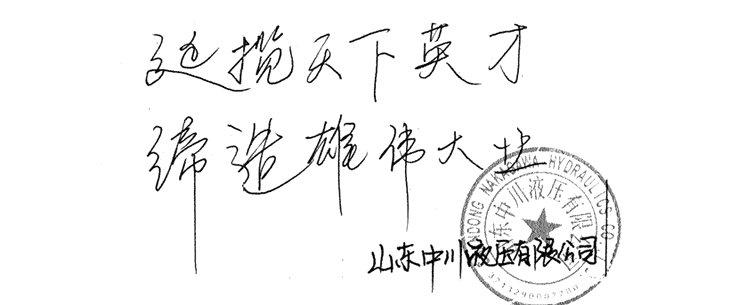 延揽天下英才
缔造雄伟大业
山东中川液压有限公司
NDONG NAKAGAWA HYDRAULICS CO
东中川液压有限公